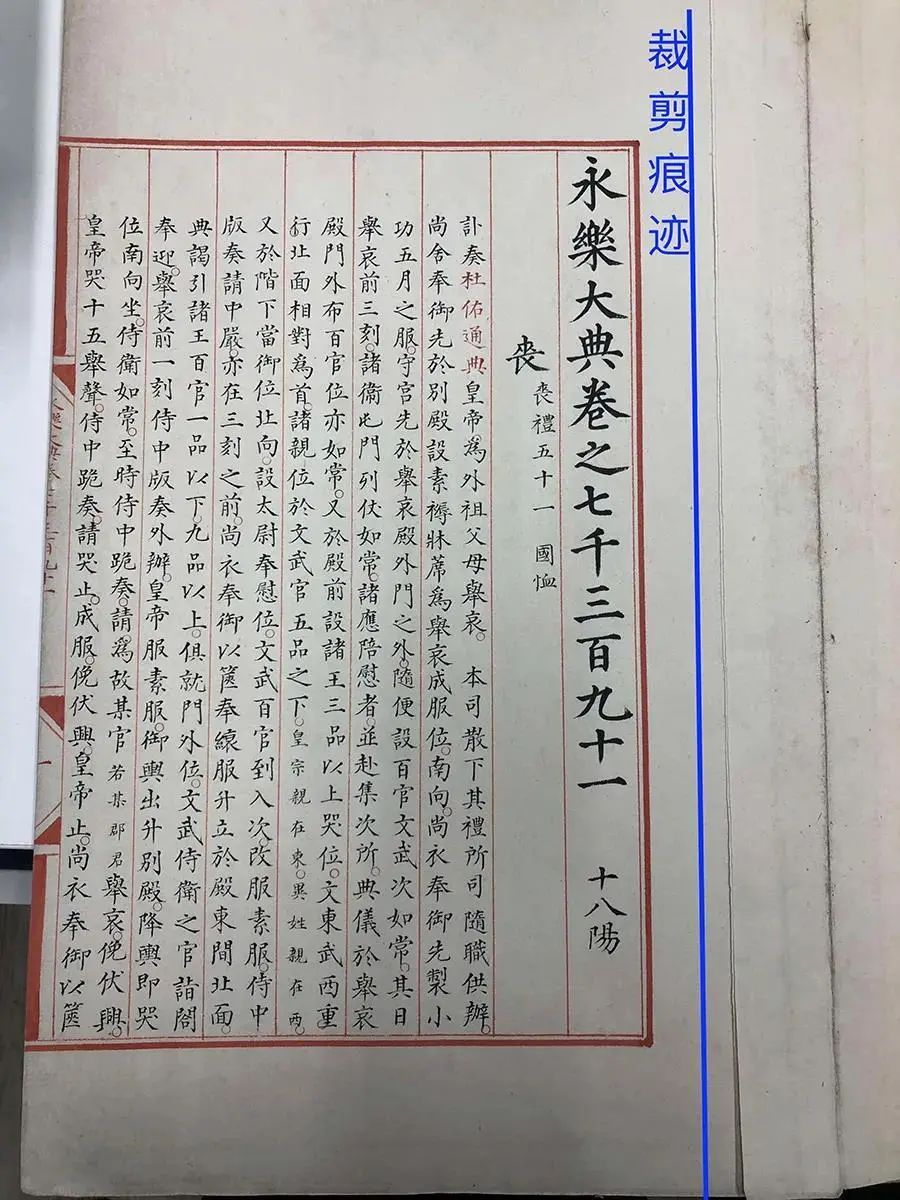 裁剪痕迹
永樂大典卷之七千三百九十一　十八陽
喪　喪禮五十一　國恤
訃奏杜佑通典皇帝爲外祖父母舉哀。本司散下其禮所司隨職供辦。
尚舍奉御先於別殿設素褥牀蓆爲舉哀成服位。南向。尚衣奉御先製小
功五月之服。守宮先於舉哀殿外門之外。隨便設百官文武次如常。其日
舉哀前三刻。諸衞屯門列仗如常。諸應陪慰者。並赴集次所。典儀於舉哀
殿門外布百官位亦如常。又於殿前設諸王三品以上哭位。文東武西重
行北面相對爲首。諸親位於文武官五品之下。皇宗親在東。異姓親在西。
又於階下當御位北向。設太尉奉慰位。文武百官到入次改服素服。侍中
版奏請中嚴。亦在三刻之前。尚衣奉御以篋奉縗服升立於殿東間北面。
典謁引諸王百官一品以下。九品以上。俱就門外位。文武侍衛之官詣閤
奉迎。舉哀前一刻侍中版奏外辦。皇帝服素服。御輿出升別殿。降輿即哭
位南向坐。侍衛如常。至時侍中跪奏。請爲故某官若某郡君舉哀。俛伏興。
皇帝哭十五舉聲。侍中跪奏。請哭止。成服。俛伏興。皇帝止。尚衣奉御以篋